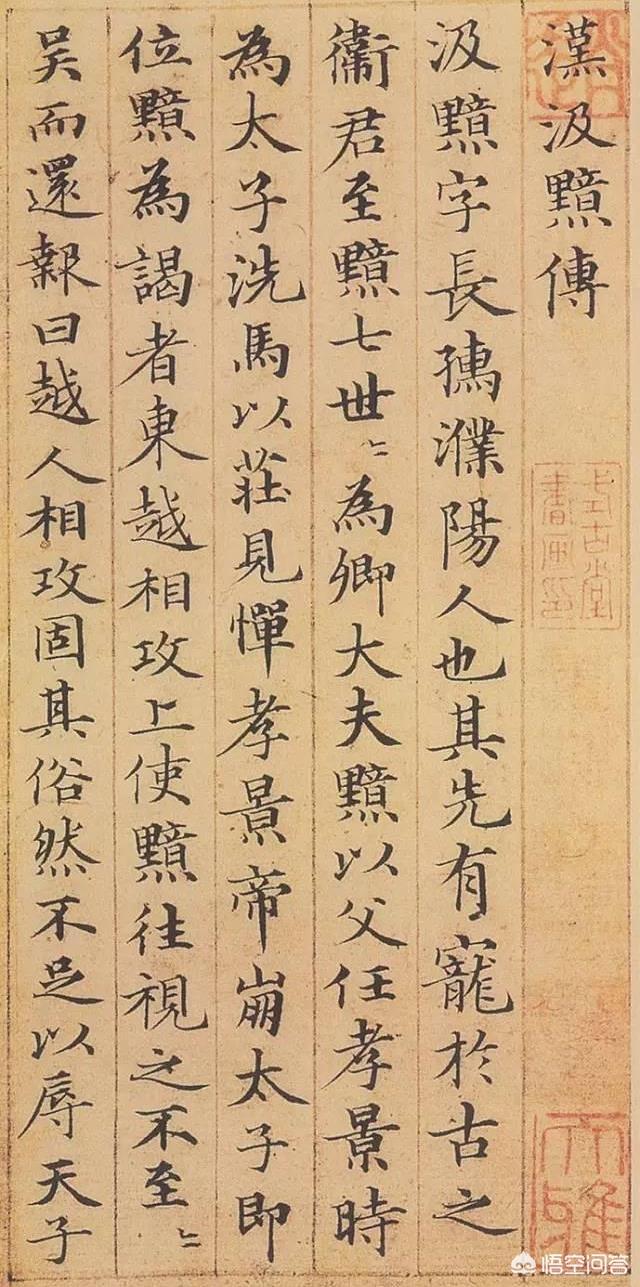 漢汲黯傳
汲黯字長孺濮陽人也其先有寵於古之
衛君至黯七世〻為卿大夫黯以父任孝景時
為太子洗馬以莊見憚孝景帝崩太子即
位黯為謁者東越相攻上使黯往視之不至〻
吴而還報曰越人相攻固其俗然不足以辱天子
書画印
大雅
悟空问答